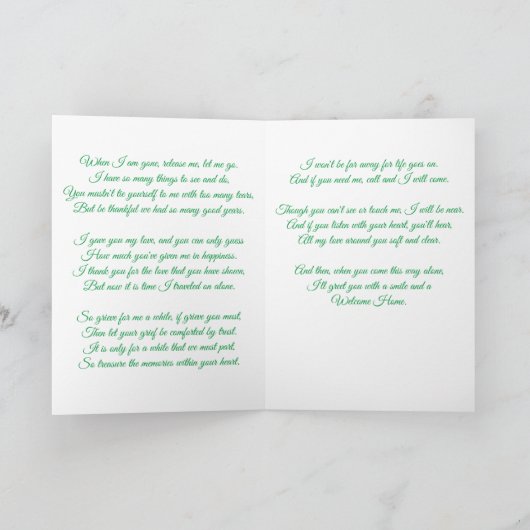 When I am gone, release me, let me go.
I have so many things to see and do,
You mustn't tie yourself to me with too many tears,
But be thankful we had so many good years.
I gave you my love, and you can only guess
How much you've given me in happiness.
I thank you for the love that you have shown,
But now it is time I traveled on alone.
So grieve for me a while, if grieve you must,
Then let your grief be comforted by trust.
It is only for a while that we must part,
So treasure the memories within your heart.
I won't be far away for life goes on.
And if you need me, call and I will come.
Though you can't see or touch me, I will be near.
And if you listen with your heart, you'll hear,
All my love around you soft and clear.
And then, when you come this way alone,
I'll greet you with a smile and a
Welcome Home.